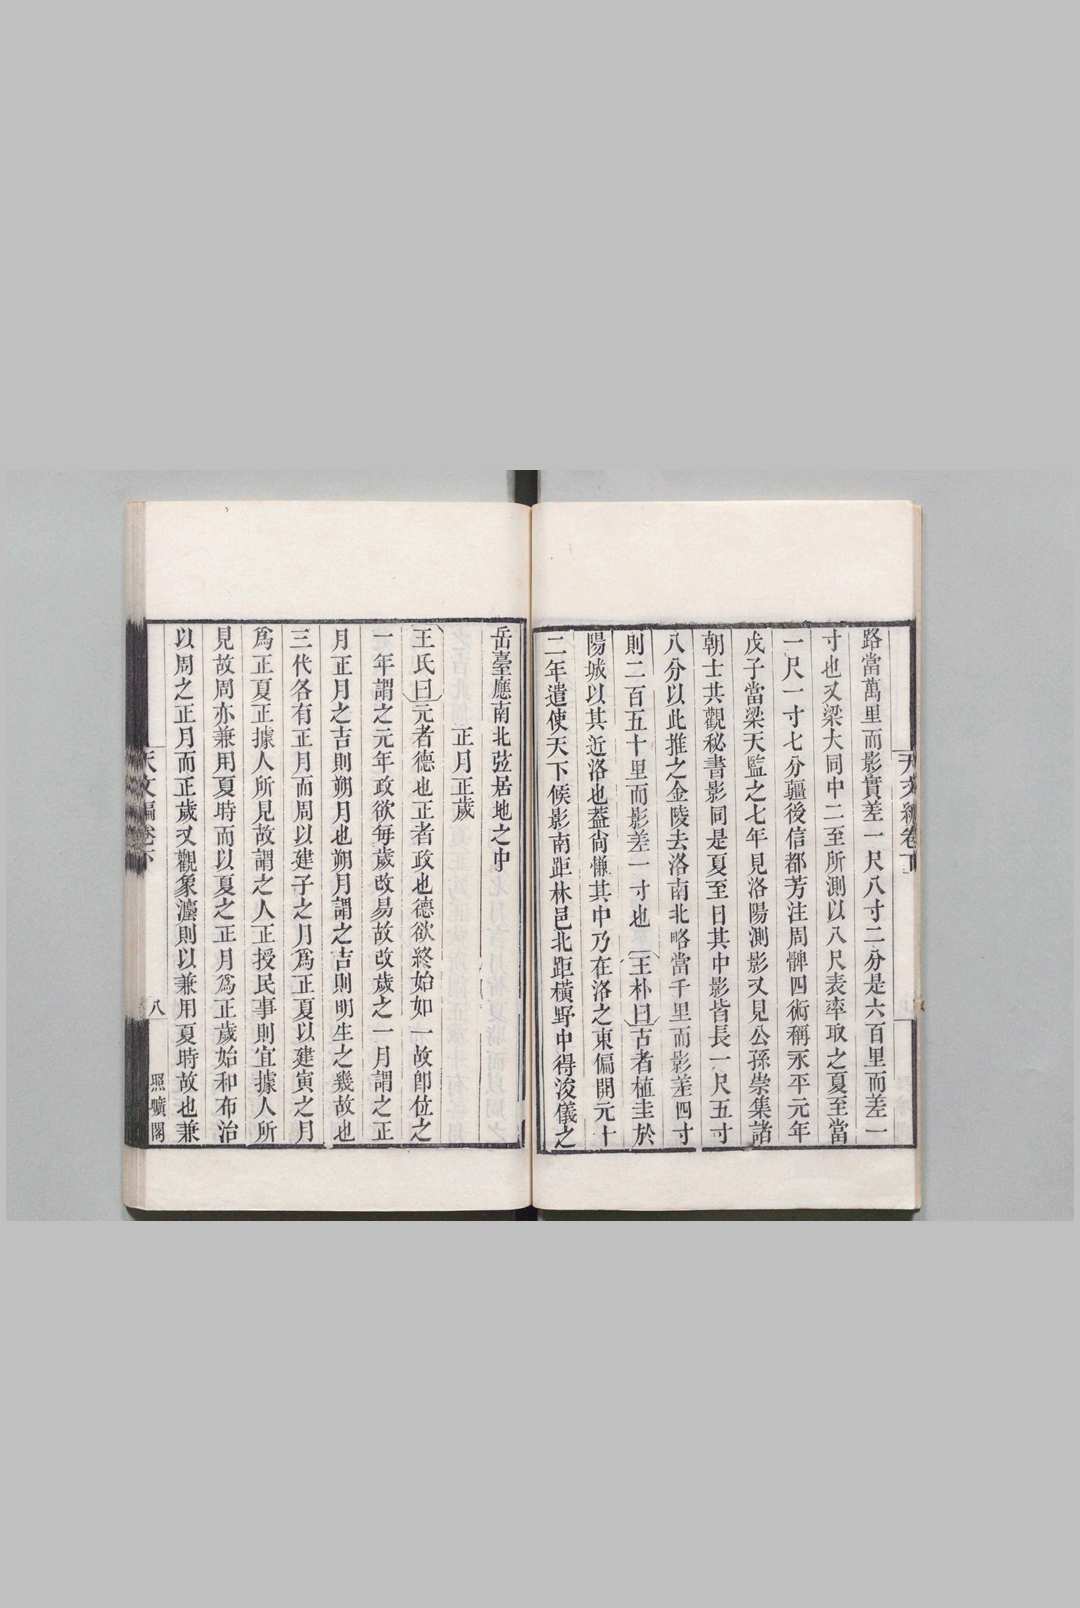 路當萬里而影實差一尺八寸二分是六百里而差一
寸也又梁大同中二至所測以八尺表率取之夏至當
一尺一寸七分疆後信都芳注周髀四術稱永平元年
戊子當梁天監之七年見洛陽測影又見公孫崇集諸
朝士共觀秘書影同是夏至日其中影皆長一尺五寸
八分以此推之金陵去洛南北略當千里而影差四寸
則二百五十里而影差一寸也王朴曰古者植圭於
陽城以其近洛也蓋尙慊其中乃在洛之東偏開元十
二年遣使天下候影南距林邑北距橫野中得浚儀之
岳臺應南北弦居地之中
正月正歲
王氏曰元者德也正者政也德欲終始如一故卽位之
一年謂之元年政欲每歲改易故改歲之一月謂之正
月正月之吉則朔月也朔月謂之吉則明生之幾故也
三代各有正月而周以建子之月爲正夏以建寅之月
爲正夏正據人所見故謂之人正授民事則宜據人所
見故周亦兼用夏時而以夏之正月爲正歲始和布治
以周之正月而正歲又觀象灋則以兼用夏時故也兼
天文編卷下
八
照曠閣